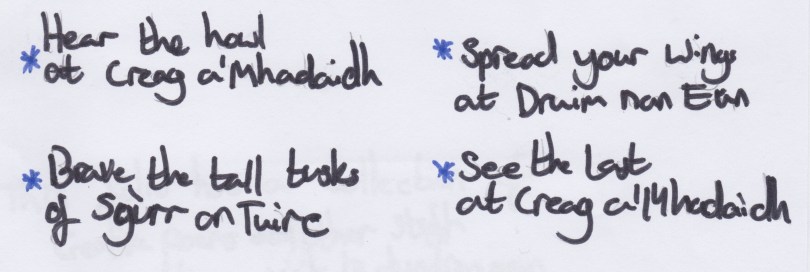 * Hear the howl
at Creag a'Mhadaidh
* Brave the tall tusks
of Sgùrr an Tuirc
* Spread your wings
at Druim nan Eun
* See the last
at Creag a'Mhadaidh